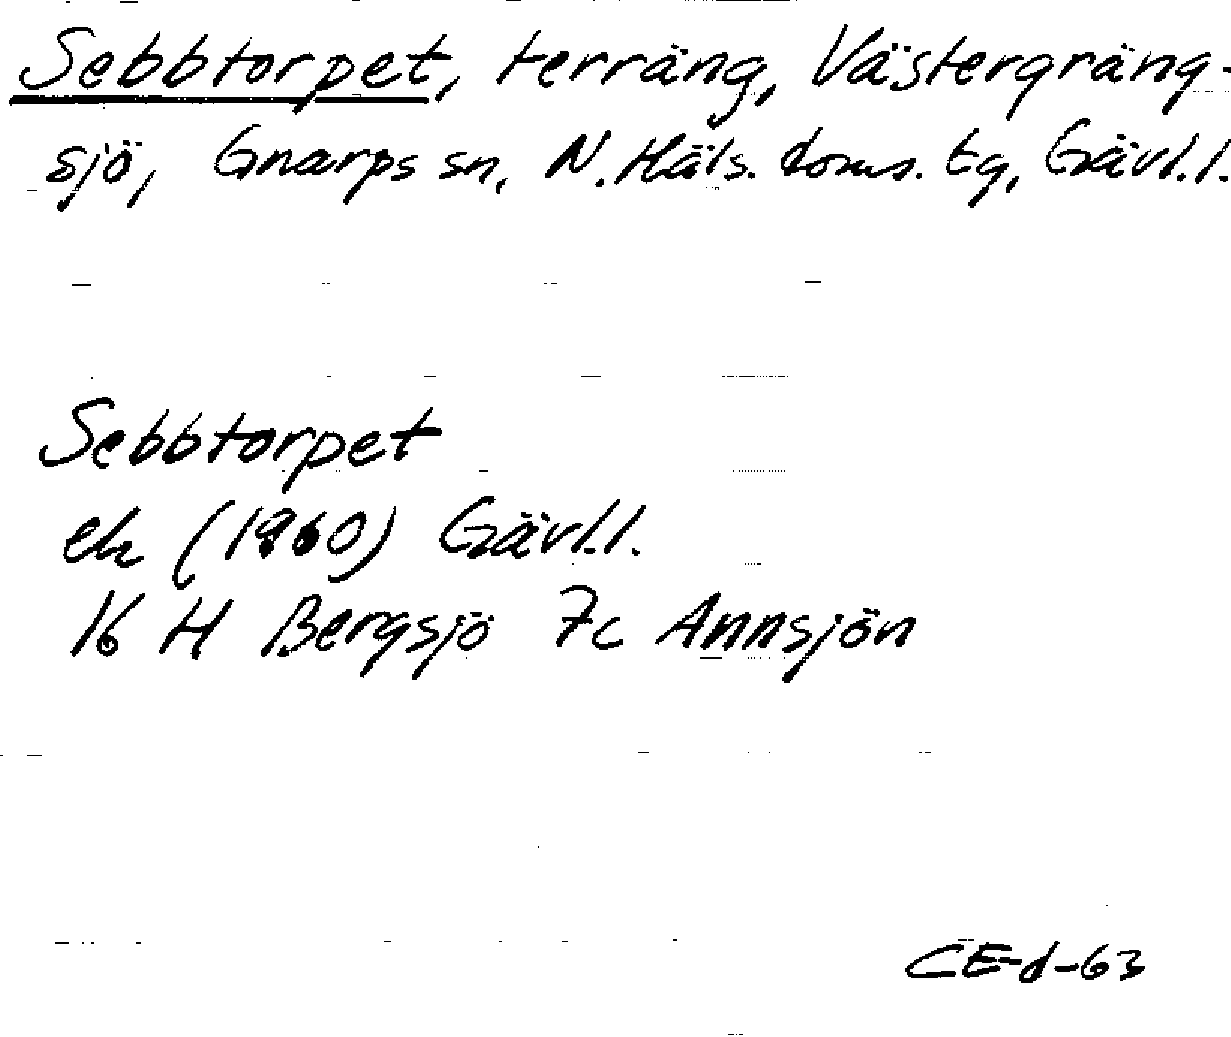 Sebbtorpet, terräng, Västergräng-
sjö, Gnarps sn, N. Häls. doms. tg, Gävl.l.
Sebbtorpet
ek (1960) Gävl.l.
16 H Bergsjö 7c Annsjön
CE-d-63